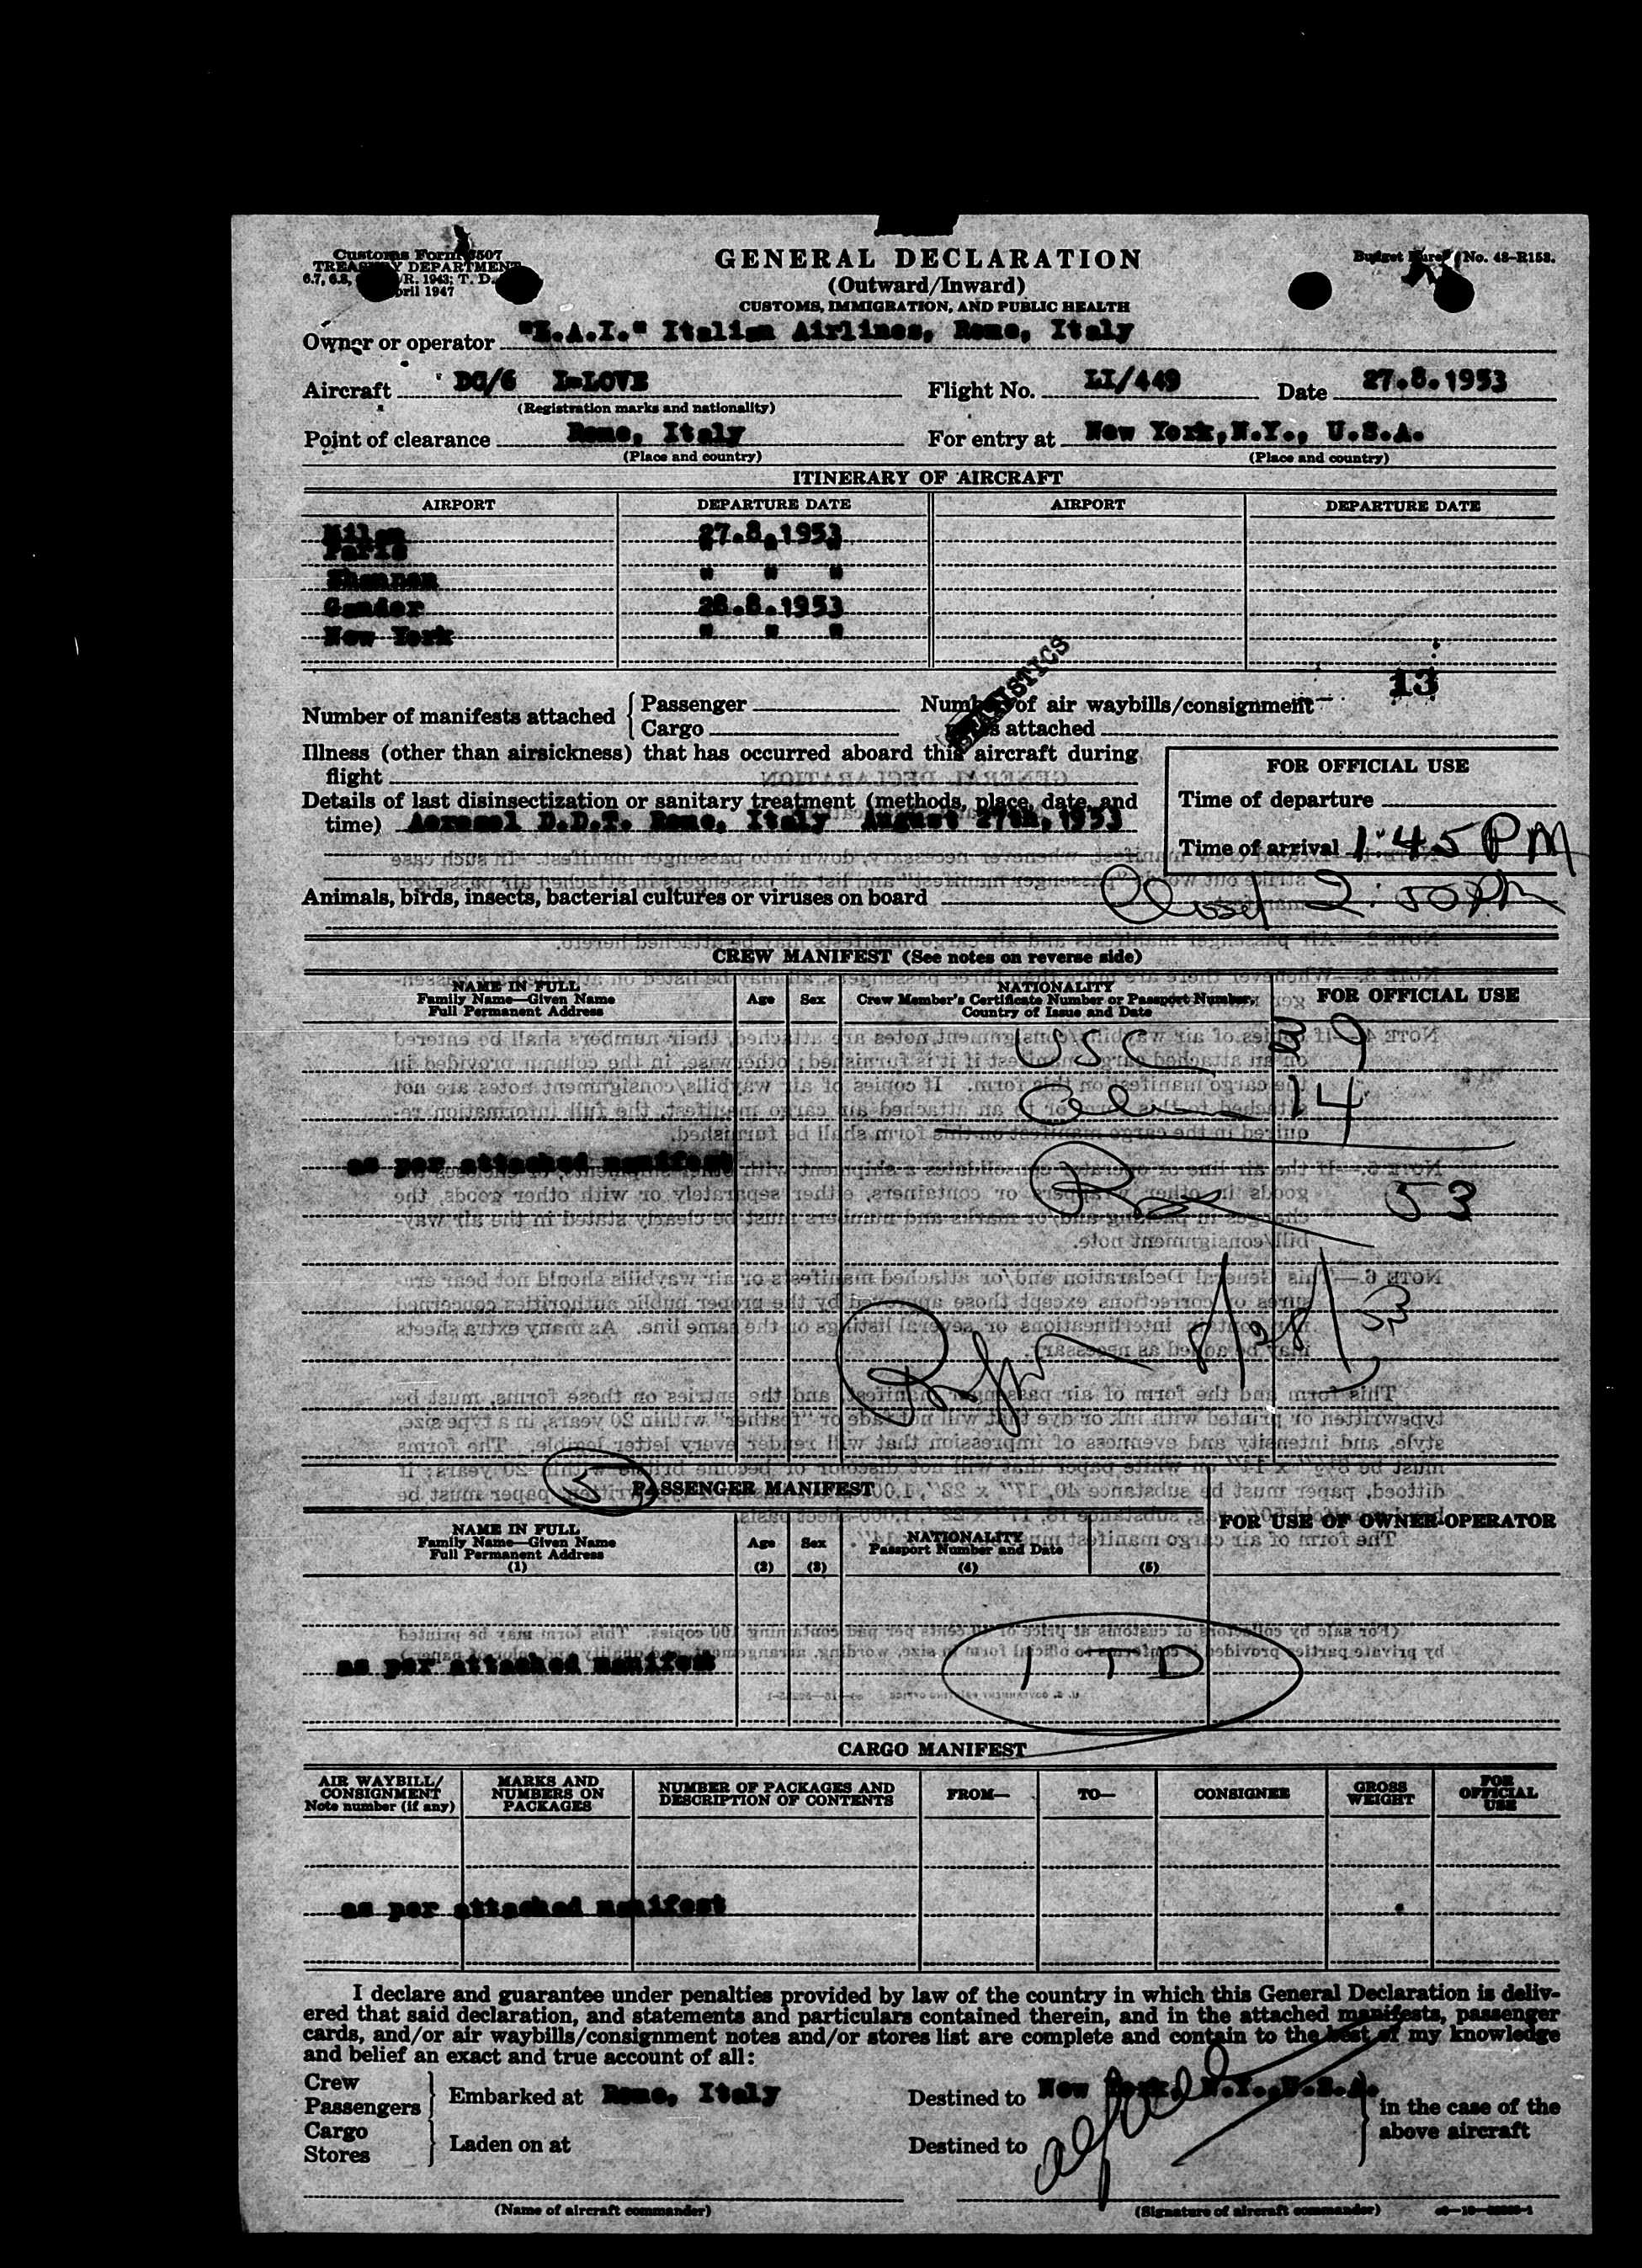 Customs Form 7507
TREASURY DEPARTMENT
April 1947
GENERAL DECLARATION
(Outward/Inward)
CUSTOMS, IMMIGRATION, AND PUBLIC HEALTH
Budget Bureau No. 48-R158.
Owner or operator "L.A.I." Italian Airlines, Rome, Italy
Aircraft DC/6 I-LOVE Flight No. LI/449 Date 27.8.1953
(Registration marks and nationality)
Point of clearance Rome, Italy For entry at New York, N.Y., U.S.A.
(Place and country) (Place and country)
ITINERARY OF AIRCRAFT
AIRPORT DEPARTURE DATE AIRPORT DEPARTURE DATE
Milan 27.8.1953
Paris " " "
Shannon " " "
Gander 28.8.1953
New York " " "
STATISTICS
13
Number of manifests attached Passenger Number of air waybills/consignment
Cargo attached
Illness (other than airsickness) that has occurred aboard this aircraft during
flight
FOR OFFICIAL USE
Details of last disinsectization or sanitary treatment (methods, place, date, and
time) Aerosol D.D.T. Rome, Italy August 27th, 1953
Time of departure
Time of arrival 1:45 PM
Animals, birds, insects, bacterial cultures or viruses on board
2:50 PM
CREW MANIFEST (See notes on reverse side)
NAME IN FULL
Family Name—Given Name
Full Permanent Address
Age Sex
NATIONALITY
Crew Member's Certificate Number or Passport Number,
Country of Issue and Date
FOR OFFICIAL USE
USC 39
14
as per attached manifest
53
5
PASSENGER MANIFEST
NAME IN FULL
Family Name—Given Name
Full Permanent Address
(1)
Age Sex
(2) (3)
NATIONALITY
Passport Number and Date
(4) (5)
FOR USE OF OWNER-OPERATOR
as per attached manifest
1 TD
CARGO MANIFEST
AIR WAYBILL/
CONSIGNMENT
Note number (if any)
MARKS AND
NUMBERS ON
PACKAGES
NUMBER OF PACKAGES AND
DESCRIPTION OF CONTENTS
FROM— TO— CONSIGNEE
GROSS
WEIGHT
FOR
OFFICIAL
USE
as per attached manifest
I declare and guarantee under penalties provided by law of the country in which this General Declaration is deliv-
ered that said declaration, and statements and particulars contained therein, and in the attached manifests, passenger
cards, and/or air waybills/consignment notes and/or stores list are complete and contain to the best of my knowledge
and belief an exact and true account of all:
Crew
Passengers Embarked at Rome, Italy Destined to New York, N.Y., U.S.A. in the case of the
Cargo above aircraft
Stores Laden on at Destined to
(Name of aircraft commander) (Signature of aircraft commander)